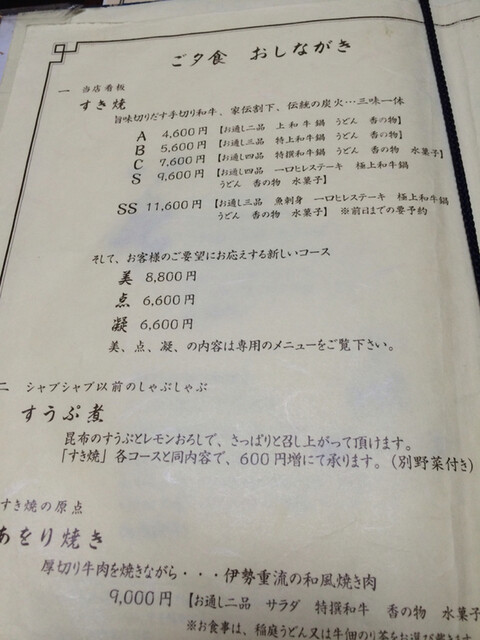 ご夕食 おしながき
一 当店看板
すき焼
旨味切りだす手切り和牛、家伝割下、伝統の炭火…三味一体
A 4,600円 【お通し二品 上和牛鍋 うどん 香の物】
B 5,600円 【お通し三品 特上和牛鍋 うどん 香の物】
C 7,600円 【お通し四品 特撰和牛鍋 うどん 香の物 水菓子】
S 9,600円 【お通し四品 一口ヒレステーキ 極上和牛鍋
うどん 香の物 水菓子】
SS 11,600円 【お通し三品 魚刺身 一口ヒレステーキ 極上和牛鍋
うどん 香の物 水菓子】 ※前日までの要予約
そして、お客様のご要望にお応えする新しいコース
美 8,800円
点 6,600円
凝 6,600円
美、点、凝、の内容は専用のメニューをご覧下さい。
二 シャブシャブ以前のしゃぶしゃぶ
すうぷ煮
昆布のすうぷとレモンおろしで、さっぱりと召し上がって頂けます。
「すき焼」各コースと同内容で、600円増にて承ります。(別野菜付き)
すき焼の原点
あをり焼き
厚切り牛肉を焼きながら・・・伊勢重流の和風焼き肉
9,000円 【お通し二品 サラダ 特撰和牛 香の物 水菓子
※お食事は、稲庭うどん又は牛佃のり茶をお選び